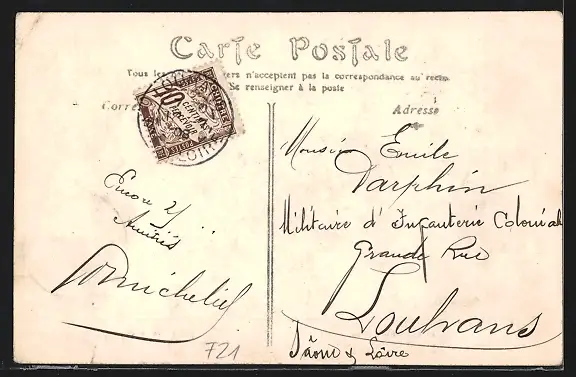 Carte Postale
Tous les pays étrangers n'acceptent pas la correspondance au recto
Se renseigner à la poste
Adresse
10
CENTIMES
A PERCEVOIR
POSTES
LOIRE
Amitiés
Monsieur Emile
Darphin
Militaire d'Infanterie Coloniale
Grande Rue
Louhans
Saône & Loire
721